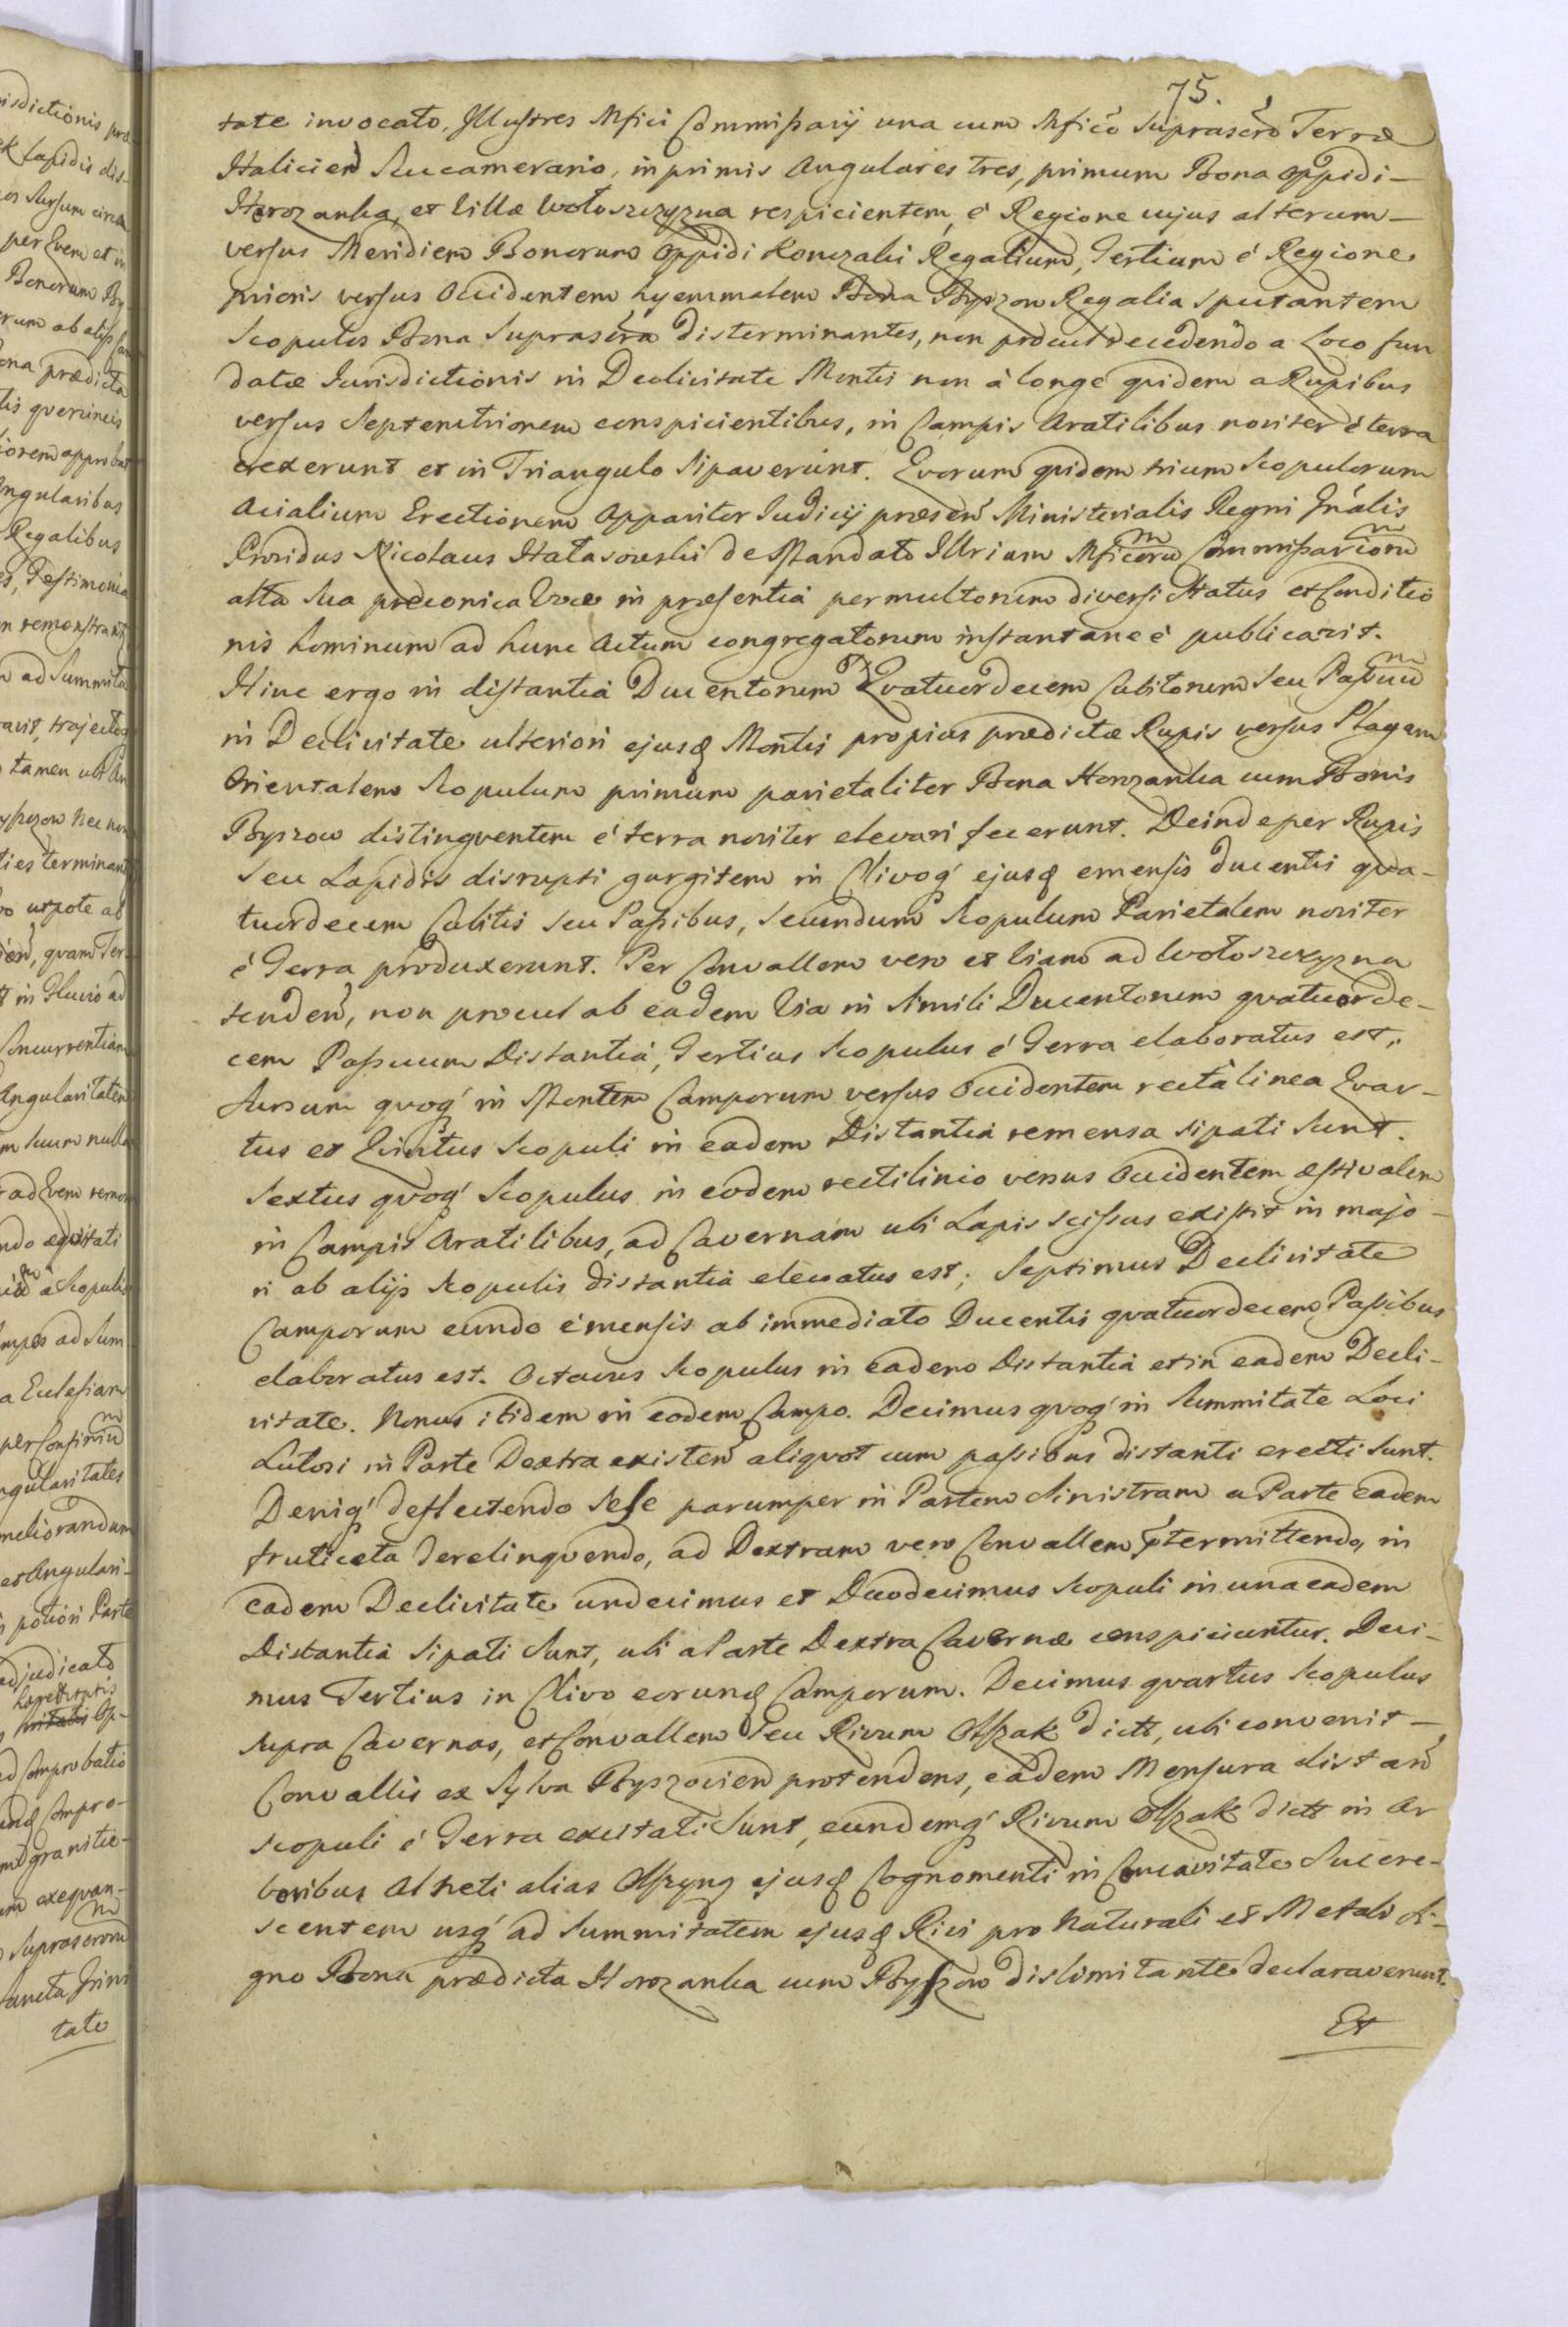 75.
tate invocato, Illustres Mfici Commissarij una cum Mfico Suprascro Terræ
Halicien Succamerario, inprimis Angulares tres, primum Bona Oppidi
Horozanka, et Villæ Wołoszczyzna respicientem, é Regione cujus alterum
versus Meridiem Bonorum Oppidi Konczaki Regalium, Tertium é Regione
prioris versus Occidentem hyemmalem Bona Byszow Regalia sputantem
Scopulos Bona Suprascra disterminantes, non procul recedendo a Loco fun
datæ Jurisdictionis in Declivitate Montis non á longe quidem a Rupibus
versus Septemtrionem conspicientibus, in Campis Aratilibus noviter é terra
erexerunt et in Triangulo Sipaverunt. Qvorum quidem trium Scopulorum
Acialium Erectionem Apparitor Judicij præsen Ministerialis Regni Gnalis
Providus Nicolaus Hałasowski de Mandato Illrium Mficorum Commissariorum
alta sua preconica Voce in præsentia permultorum diversi Status et Conditio
nis hominum ad hunc Actum congregatorum instantanee publicavit.
Hinc ergo in distantia Ducentorum et Qvatuordecem Cubitorum seu Passuum
in Declivitate ulteriori ejusq Montis propius prædictæ Rupis versus Plagam
Orientalem Scopulum primum parietaliter Bona Horozanka cum Bonis
Byszow distingventem é terra noviter elevari fecerunt. Deinde per Rupis
seu Lapidis disrupti gurgitem in Clivoq ejusq emensis ducentis qva-
tuordecem Cubitis seu Passibus, secundum Scopulum Parietalem noviter
é Terra produxerunt. Per Convallem vero et Viam ad Wołoszczyzna
tenden, non procul ab eadem Via in Simili Ducentorum qvatuorde-
cem Passuum Distantia, Tertius Scopulus é Terra elaboratus est,
Sursum qvoq in Montem Camporum versus Occidentem recta linea Qvar-
tus et Qvintus Scopuli in eadem Distantia remensa sipati sunt.
Sextus qvoq Scopulus in eodem rectilinio versus Occidentem æstivalem
in Campis Aratilibus, ad Cavernam ubi Lapis scissus existit in majo-
ri ab alijs Scopulis distantia elevatus est; Septimus Declivitate
Camporum eundo emensis ab immediato Ducentis qvatuordecem Passibus
elaboratus est. Octavus Scopulus in eadem Distantia et in eadem Decli-
vitate. Nonus itidem in eodem Campo. Decimus qvoq in Summitate Loci
Lutosi in Parte Dextra existen aliqvot cum passibus distanti erecti sunt.
Deniq deflectendo sese parumper in Partem Sinistram a Parte eadem
fruticeta derelinqvendo, ad Dextram vero Convallem ptermittendo, in
eadem Declivitate undecimus et Duodecimus Scopuli in una eadem
Distantia Sipati sunt, ubi a Parte Dextra Cavernæ conspiciuntur. Deci-
mus Tertius in Clivo eorunq Camporum. Decimus qvartus Scopulus
supra Cavernas, et Convallem seu Rivum Olszak dict, ubi convenit
Convallis ex Sylva Byszovien protendens, eadem Mensura distan
Scopuli é Terra excitati sunt, eundemq Rivum Olszak dict in Ar
boribus Alneti alias Olszyny ejusq Cognomenti in Concavitate Succre-
scentem usq ad Summitatem ejusq Rivi pro Naturali et Metali Si-
gno Bona prædicta Horozanka cum Byszow dislimitante declaraverunt.
Et